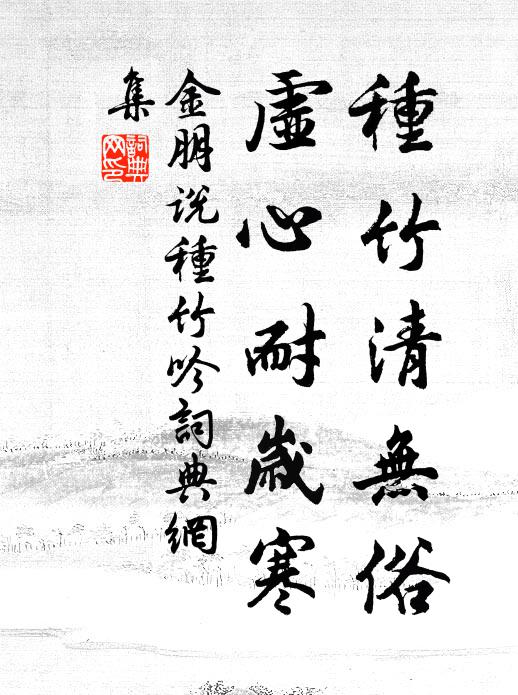 種竹清無俗
虛心耐歲寒
金朋说種竹吟詞典網
集
詞典
网印